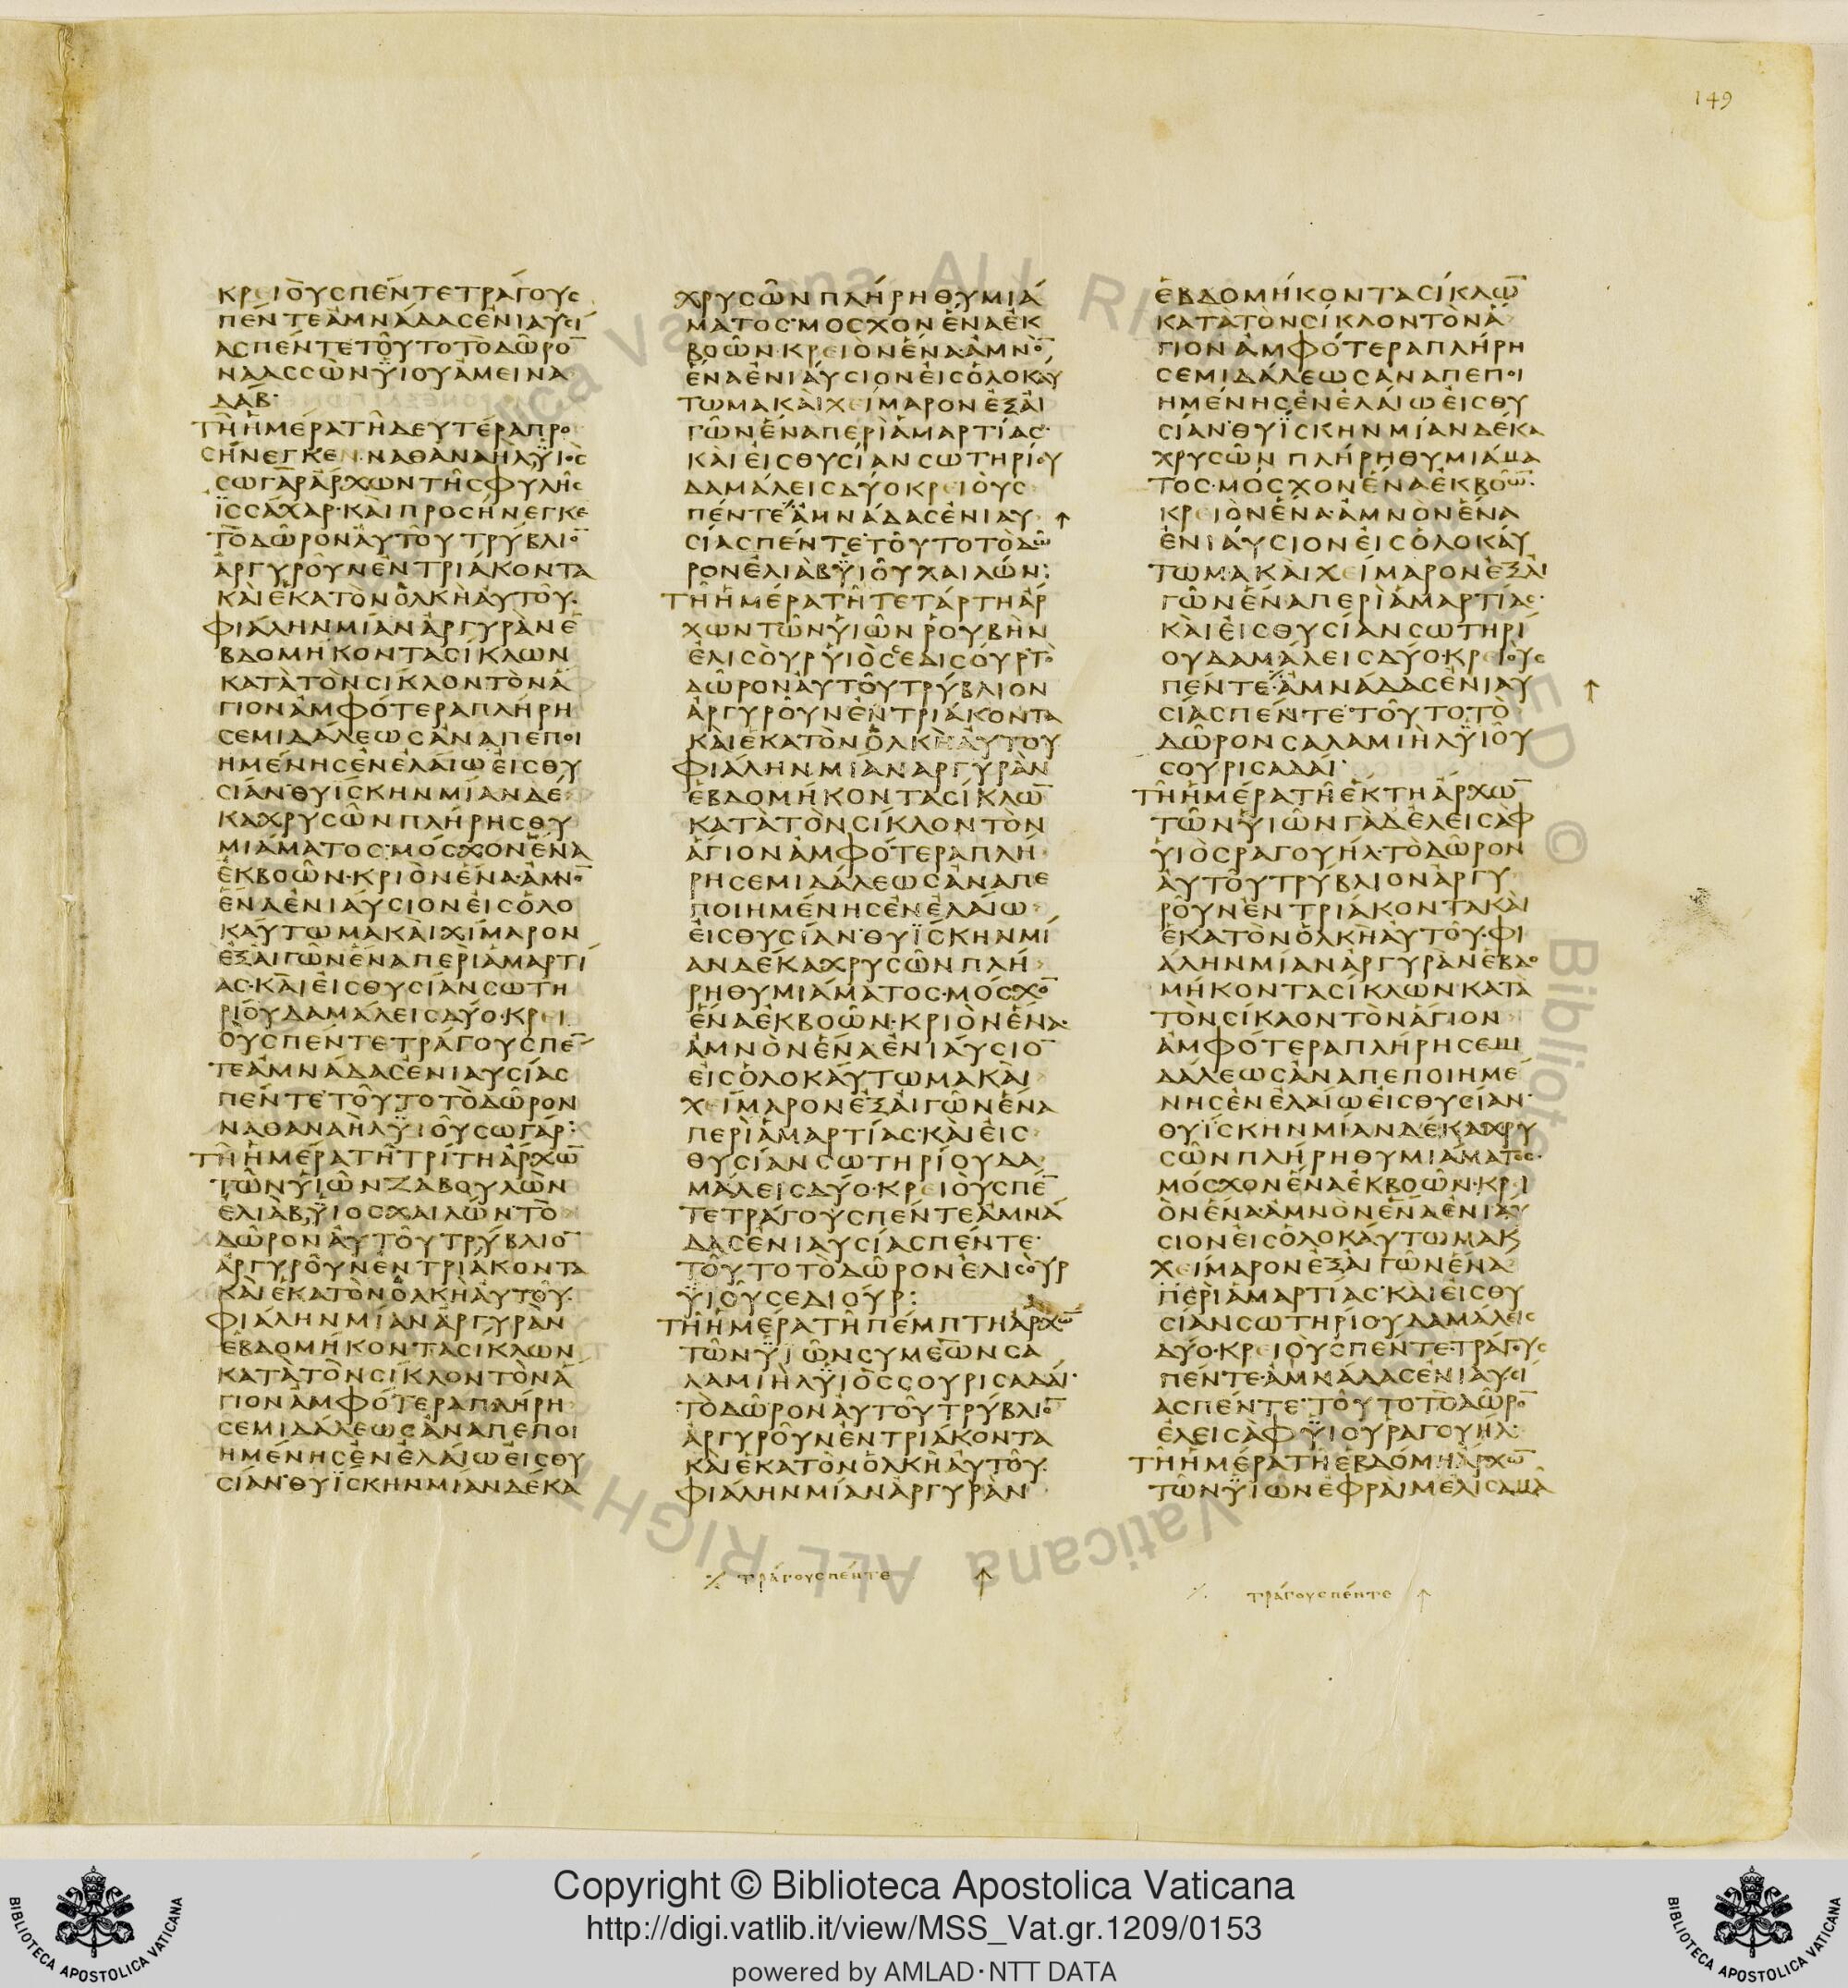 149
ΚΡΕΙΟΥϹΠΕΝΤΕΤΡΑΓΟΥϹ
ΠΕΝΤΕΑΜΝΑΔΑϹΕΝΙΑΥϹΙ
ΑϹΠΕΝΤΕΤΟΥΤΟΤΟΔΩΡΟ̅
ΝΑΑϹϹΩΝΥΙΟΥΑΜΕΙΝΑ
ΔΑΒ·
ΤΗΗΜΕΡΑΤΗΔΕΥΤΕΡΑΠΡΟ
ϹΗΝΕΓΚΕΝ·ΝΑΘΑΝΑΗΛΥΙΟϹ
ϹΩΓΑΡΑΡΧΩΝΤΗϹΦΥΛΗϹ
ΙϹϹΑΧΑΡ·ΚΑΙΠΡΟϹΗΝΕΓΚΕ
ΤΟΔΩΡΟΝΑΥΤΟΥΤΡΥΒΛΙΟ̅
ΑΡΓΥΡΟΥΝΕΝΤΡΙΑΚΟΝΤΑ
ΚΑΙΕΚΑΤΟΝΟΛΚΗΑΥΤΟΥ·
ΦΙΑΛΗΝΜΙΑΝΑΡΓΥΡΑΝΕ
ΒΔΟΜΗΚΟΝΤΑϹΙΚΛΩΝ
ΚΑΤΑΤΟΝϹΙΚΛΟΝΤΟΝΑ
ΓΙΟΝΑΜΦΟΤΕΡΑΠΛΗΡΗ
ϹΕΜΙΔΑΛΕΩϹΑΝΑΠΕΠΟΙ
ΗΜΕΝΗϹΕΝΕΛΑΙΩΕΙϹΘΥ
ϹΙΑΝ·ΘΥΙϹΚΗΝΜΙΑΝΔΕ
ΚΑΧΡΥϹΩΝΠΛΗΡΗϹΘΥ
ΜΙΑΜΑΤΟϹ·ΜΟϹΧΟΝΕΝΑ
ΕΚΒΟΩΝ·ΚΡΙΟΝΕΝΑ·ΑΜΝΟ̅
ΕΝΑΕΝΙΑΥϹΙΟΝΕΙϹΟΛΟ
ΚΑΥΤΩΜΑΚΑΙΧΙΜΑΡΟΝ
ΕΞΑΙΓΩΝΕΝΑΠΕΡΙΑΜΑΡΤΙ
ΑϹ·ΚΑΙΕΙϹΘΥϹΙΑΝϹΩΤΗ
ΡΙΟΥΔΑΜΑΛΕΙϹΔΥΟ·ΚΡΕΙ
ΟΥϹΠΕΝΤΕΤΡΑΓΟΥϹΠΕ̅
ΤΕΑΜΝΑΔΑϹΕΝΙΑΥϹΙΑϹ
ΠΕΝΤΕ·ΤΟΥΤΟΤΟΔΩΡΟΝ
ΝΑΘΑΝΑΗΛΥΙΟΥϹΩΓΑΡ:
ΤΗΗΜΕΡΑΤΗΤΡΙΤΗΑΡΧΩ̅
ΤΩΝΥΙΩΝΖΑΒΟΥΛΩΝ
ΕΛΙΑΒΥΙΟϹΧΑΙΛΩΝ·ΤΟ
ΔΩΡΟΝΑΥΤΟΥΤΡΥΒΛΙΟ̅
ΑΡΓΥΡΟΥΝΕΝΤΡΙΑΚΟΝΤΑ
ΚΑΙΕΚΑΤΟΝΟΛΚΗΑΥΤΟΥ·
ΦΙΑΛΗΝΜΙΑΝΑΡΓΥΡΑΝ
ΕΒΔΟΜΗΚΟΝΤΑϹΙΚΛΩΝ
ΚΑΤΑΤΟΝϹΙΚΛΟΝΤΟΝΑ
ΓΙΟΝΑΜΦΟΤΕΡΑΠΛΗΡΗ
ϹΕΜΙΔΑΛΕΩϹΑΝΑΠΕΠΟΙ
ΗΜΕΝΗϹΕΝΕΛΑΙΩΕΙϹΘΥ
ϹΙΑΝ·ΘΥΙϹΚΗΝΜΙΑΝΔΕΚΑ
ΧΡΥϹΩΝΠΛΗΡΗΘΥΜΙΑ
ΜΑΤΟϹ·ΜΟϹΧΟΝΕΝΑΕΚ
ΒΟΩΝ·ΚΡΕΙΟΝΕΝΑ·ΑΜΝΟ̅
ΕΝΑΕΝΙΑΥϹΙΟΝΕΙϹΟΛΟΚΑΥ
ΤΩΜΑΚΑΙΧΕΙΜΑΡΟΝΕΞΑΙ
ΓΩΝΕΝΑΠΕΡΙΑΜΑΡΤΙΑϹ·
ΚΑΙΕΙϹΘΥϹΙΑΝϹΩΤΗΡΙΟΥ
ΔΑΜΑΛΕΙϹΔΥΟΚΡΕΙΟΥϹ
ΠΕΝΤΕ⁒ΑΜΝΑΔΑϹΕΝΙΑΥ ↑
ϹΙΑϹΠΕΝΤΕ·ΤΟΥΤΟΤΟΔΩ
ΡΟΝΕΛΙΑΒΥΙΟΥΧΑΙΛΩΝ:
ΤΗΗΜΕΡΑΤΗΤΕΤΑΡΤΗΑΡ
ΧΩΝΤΩΝΥΙΩΝΡΟΥΒΗΝ
ΕΛΙϹΟΥΡΥΙΟϹϹΕΔΙϹΟΥΡ·ΤΟ
ΔΩΡΟΝΑΥΤΟΥΤΡΥΒΛΙΟΝ
ΑΡΓΥΡΟΥΝΕΝΤΡΙΑΚΟΝΤΑ
ΚΑΙΕΚΑΤΟΝΟΛΚΗΑΥΤΟΥ
ΦΙΑΛΗΝΜΙΑΝΑΡΓΥΡΑΝ
ΕΒΔΟΜΗΚΟΝΤΑϹΙΚΛΩ̅
ΚΑΤΑΤΟΝϹΙΚΛΟΝΤΟΝ
ΑΓΙΟΝΑΜΦΟΤΕΡΑΠΛΗ
ΡΗϹΕΜΙΔΑΛΕΩϹΑΝΑΠΕ
ΠΟΙΗΜΕΝΗϹΕΝΕΛΑΙΩ
ΕΙϹΘΥϹΙΑΝ·ΘΥΙϹΚΗΝΜΙ
ΑΝΔΕΚΑΧΡΥϹΩΝΠΛΗ
ΡΗΘΥΜΙΑΜΑΤΟϹ·ΜΟϹΧΟ̅
ΕΝΑΕΚΒΟΩΝ·ΚΡΙΟΝΕΝΑ·
ΑΜΝΟΝΕΝΑΕΝΙΑΥϹΙΟ̅
ΕΙϹΟΛΟΚΑΥΤΩΜΑΚΑΙ
ΧΕΙΜΑΡΟΝΕΞΑΙΓΩΝΕΝΑ
ΠΕΡΙΑΜΑΡΤΙΑϹ·ΚΑΙΕΙϹ
ΘΥϹΙΑΝϹΩΤΗΡΙΟΥΔΑ
ΜΑΛΕΙϹΔΥΟ·ΚΡΕΙΟΥϹΠΕ̅
ΤΕΤΡΑΓΟΥϹΠΕΝΤΕΑΜΝΑ
ΔΑϹΕΝΙΑΥϹΙΑϹΠΕΝΤΕ·
ΤΟΥΤΟΤΟΔΩΡΟΝΕΛΙϹΟΥΡ
ΥΙΟΥϹΕΔΙΟΥΡ:
ΤΗΗΜΕΡΑΤΗΠΕΜΠΤΗΑΡΧΩ̅
ΤΩΝΥΙΩΝϹΥΜΕΩΝϹΑ
ΛΑΜΙΗΛΥΙΟϹϹΟΥΡΙϹΑΔΑΙ·
ΤΟΔΩΡΟΝΑΥΤΟΥΤΡΥΒΛΙΟ̅
ΑΡΓΥΡΟΥΝΕΝΤΡΙΑΚΟΝΤΑ
ΚΑΙΕΚΑΤΟΝΟΛΚΗΑΥΤΟΥ·
ΦΙΑΛΗΝΜΙΑΝΑΡΓΥΡΑΝ
⁒ ΤΡΑΓΟΥϹΠΕΝΤΕ ↑
ΕΒΔΟΜΗΚΟΝΤΑϹΙΚΛΩ̅
ΚΑΤΑΤΟΝϹΙΚΛΟΝΤΟΝΑ
ΓΙΟΝΑΜΦΟΤΕΡΑΠΛΗΡΗ
ϹΕΜΙΔΑΛΕΩϹΑΝΑΠΕΠΟΙ
ΗΜΕΝΗϹΕΝΕΛΑΙΩΕΙϹΘΥ
ϹΙΑΝ·ΘΥΙϹΚΗΝΜΙΑΝΔΕΚΑ
ΧΡΥϹΩΝΠΛΗΡΗΘΥΜΙΑΜΑ
ΤΟϹ·ΜΟϹΧΟΝΕΝΑΕΚΒΟΩ̅·
ΚΡΕΙΟΝΕΝΑ·ΑΜΝΟΝΕΝΑ
ΕΝΙΑΥϹΙΟΝΕΙϹΟΛΟΚΑΥ
ΤΩΜΑΚΑΙΧΕΙΜΑΡΟΝΕΞΑΙ
ΓΩΝΕΝΑΠΕΡΙΑΜΑΡΤΙΑϹ·
ΚΑΙΕΙϹΘΥϹΙΑΝϹΩΤΗΡΙ
ΟΥΔΑΜΑΛΕΙϹΔΥΟ·ΚΡΕΙΟΥϹ
ΠΕΝΤΕ⁒ΑΜΝΑΔΑϹΕΝΙΑΥ ↑
ϹΙΑϹΠΕΝΤΕ·ΤΟΥΤΟΤΟ
ΔΩΡΟΝϹΑΛΑΜΙΗΛΥΙΟΥ
ϹΟΥΡΙϹΑΔΑΙ·
ΤΗΗΜΕΡΑΤΗΕΚΤΗΑΡΧΩ̅
ΤΩΝΥΙΩΝΓΑΔΕΛΕΙϹΑΦ
ΥΙΟϹΡΑΓΟΥΗΛ·ΤΟΔΩΡΟΝ
ΑΥΤΟΥΤΡΥΒΛΙΟΝΑΡΓΥ
ΡΟΥΝΕΝΤΡΙΑΚΟΝΤΑΚΑΙ
ΕΚΑΤΟΝΟΛΚΗΑΥΤΟΥ·ΦΙ
ΑΛΗΝΜΙΑΝΑΡΓΥΡΑΝΕΒΔΟ
ΜΗΚΟΝΤΑϹΙΚΛΩΝ·ΚΑΤΑ
ΤΟΝϹΙΚΛΟΝΤΟΝΑΓΙΟΝ
ΑΜΦΟΤΕΡΑΠΛΗΡΗϹΕΜΙ
ΔΑΛΕΩϹΑΝΑΠΕΠΟΙΗΜΕ
ΝΗϹΕΝΕΛΑΙΩΕΙϹΘΥϹΙΑΝ·
ΘΥΙϹΚΗΝΜΙΑΝΔΕΚΑΧΡΥ
ϹΩΝΠΛΗΡΗΘΥΜΙΑΜΑΤΟϹ·
ΜΟϹΧΟΝΕΝΑΕΚΒΟΩΝ·ΚΡΙ
ΟΝΕΝΑ·ΑΜΝΟΝΕΝΑΕΝΙΑΥ
ϹΙΟΝΕΙϹΟΛΟΚΑΥΤΩΜΑΚϗ
ΧΕΙΜΑΡΟΝΕΞΑΙΓΩΝΕΝΑ
ΠΕΡΙΑΜΑΡΤΙΑϹ·ΚΑΙΕΙϹΘΥ
ϹΙΑΝϹΩΤΗΡΙΟΥΔΑΜΑΛΕΙϹ
ΔΥΟ·ΚΡΕΙΟΥϹΠΕΝΤΕ·ΤΡΑΓΟΥϹ
ΠΕΝΤΕ·ΑΜΝΑΔΑϹΕΝΙΑΥϹΙ
ΑϹΠΕΝΤΕ·ΤΟΥΤΟΤΟΔΩΡΟ̅
ΕΛΕΙϹΑΦΥΙΟΥΡΑΓΟΥΗΛ:
ΤΗΗΜΕΡΑΤΗΕΒΔΟΜΗΑΡΧΩ̅
ΤΩΝΥΙΩΝΕΦΡΑΙΜΕΛΙϹΑΜΑ
⁒ ΤΡΑΓΟΥϹΠΕΝΤΕ ↑
Copyright © Biblioteca Apostolica Vaticana
http://digi.vatlib.it/view/MSS_Vat.gr.1209/0153
powered by AMLAD·NTT DATA
BIBLIOTECA APOSTOLICA VATICANA
BIBLIOTECA APOSTOLICA VATICANA